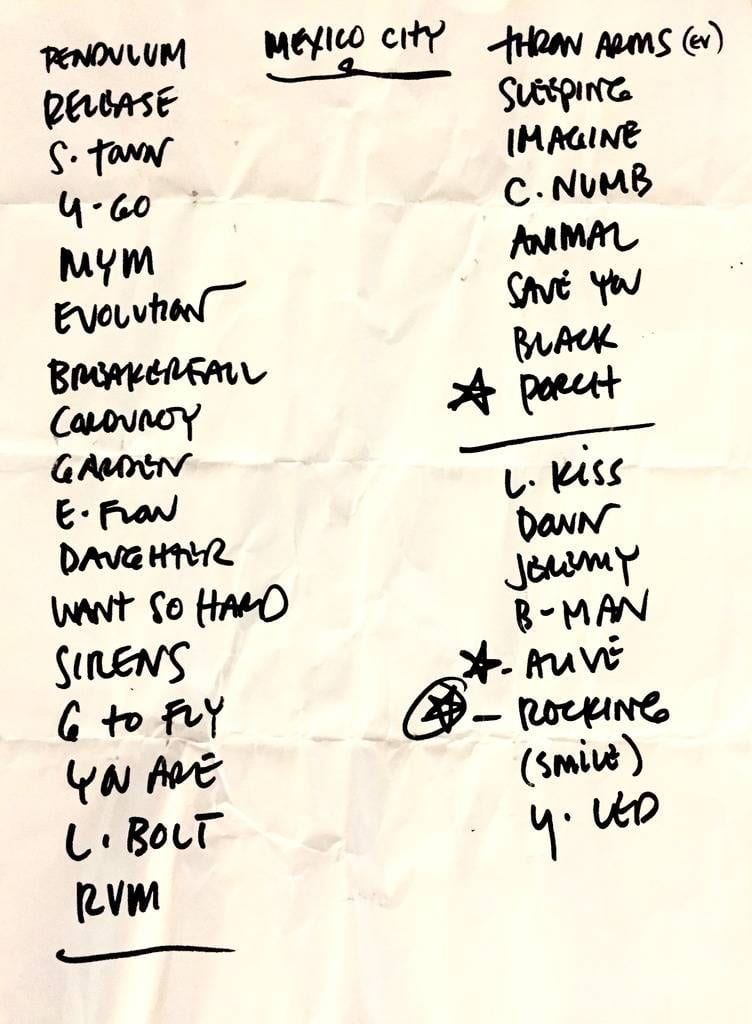 MEXICO CITY
PENDULUM
RELEASE
S. TOWN
G-GO
MYM
EVOLUTION
BREAKERFALL
CORDUROY
GARDEN
E. FLOW
DAUGHTER
WANT SO HARD
SIRENS
G to FLY
YOU ARE
L. BOLT
RVM
THROW ARMS (EV)
SLEEPING
IMAGINE
C. NUMB
ANIMAL
SAVE YOU
BLACK
☆ PORCH
L. KISS
DOWN
JEREMY
B-MAN
☆- ALIVE
☆ - ROCKING
(SMILE)
Y. LED